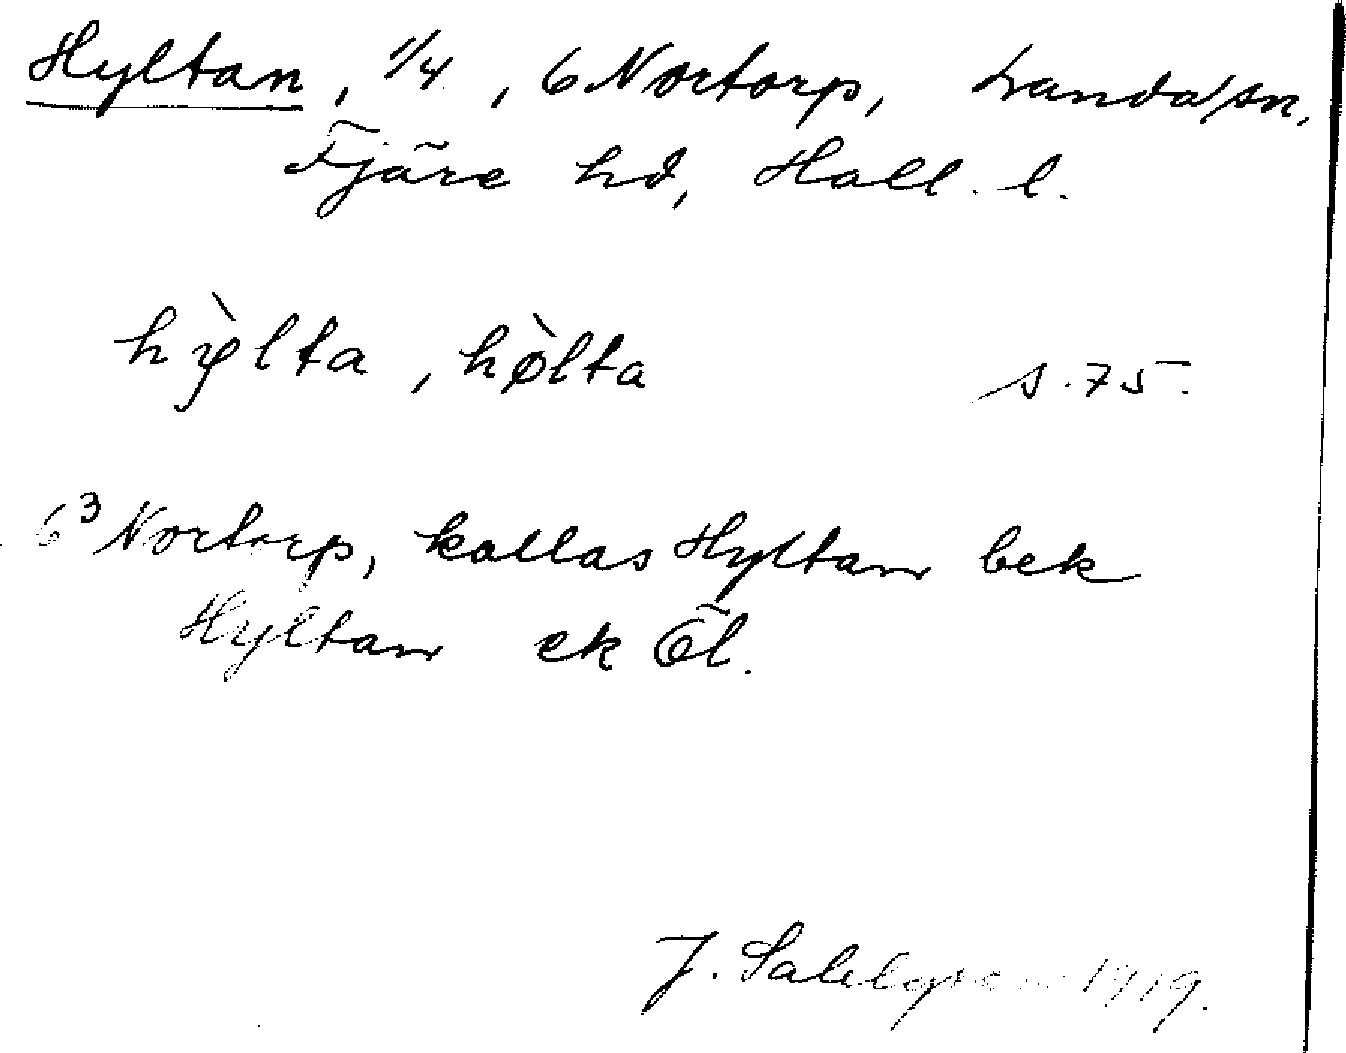 Hyltan, 1/4, 6 Nortorp, Landa sn,
Fjäre hd, Hall. l.
hỳlta, hø̀lta s. 75.
6³ Nortorp, kallas Hyltan bek
Hyltan ek Öl.
J. Sahlgren 1919.